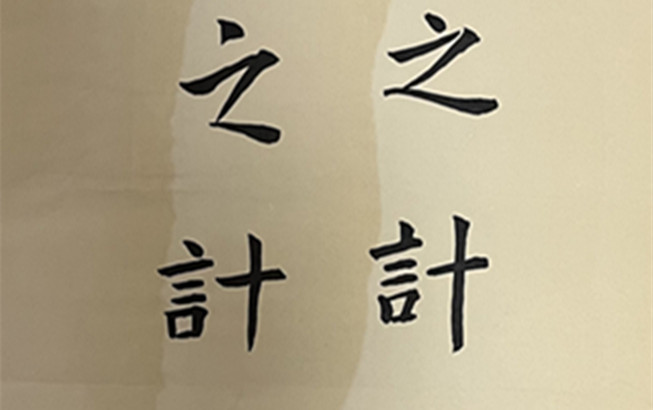 之計
之計